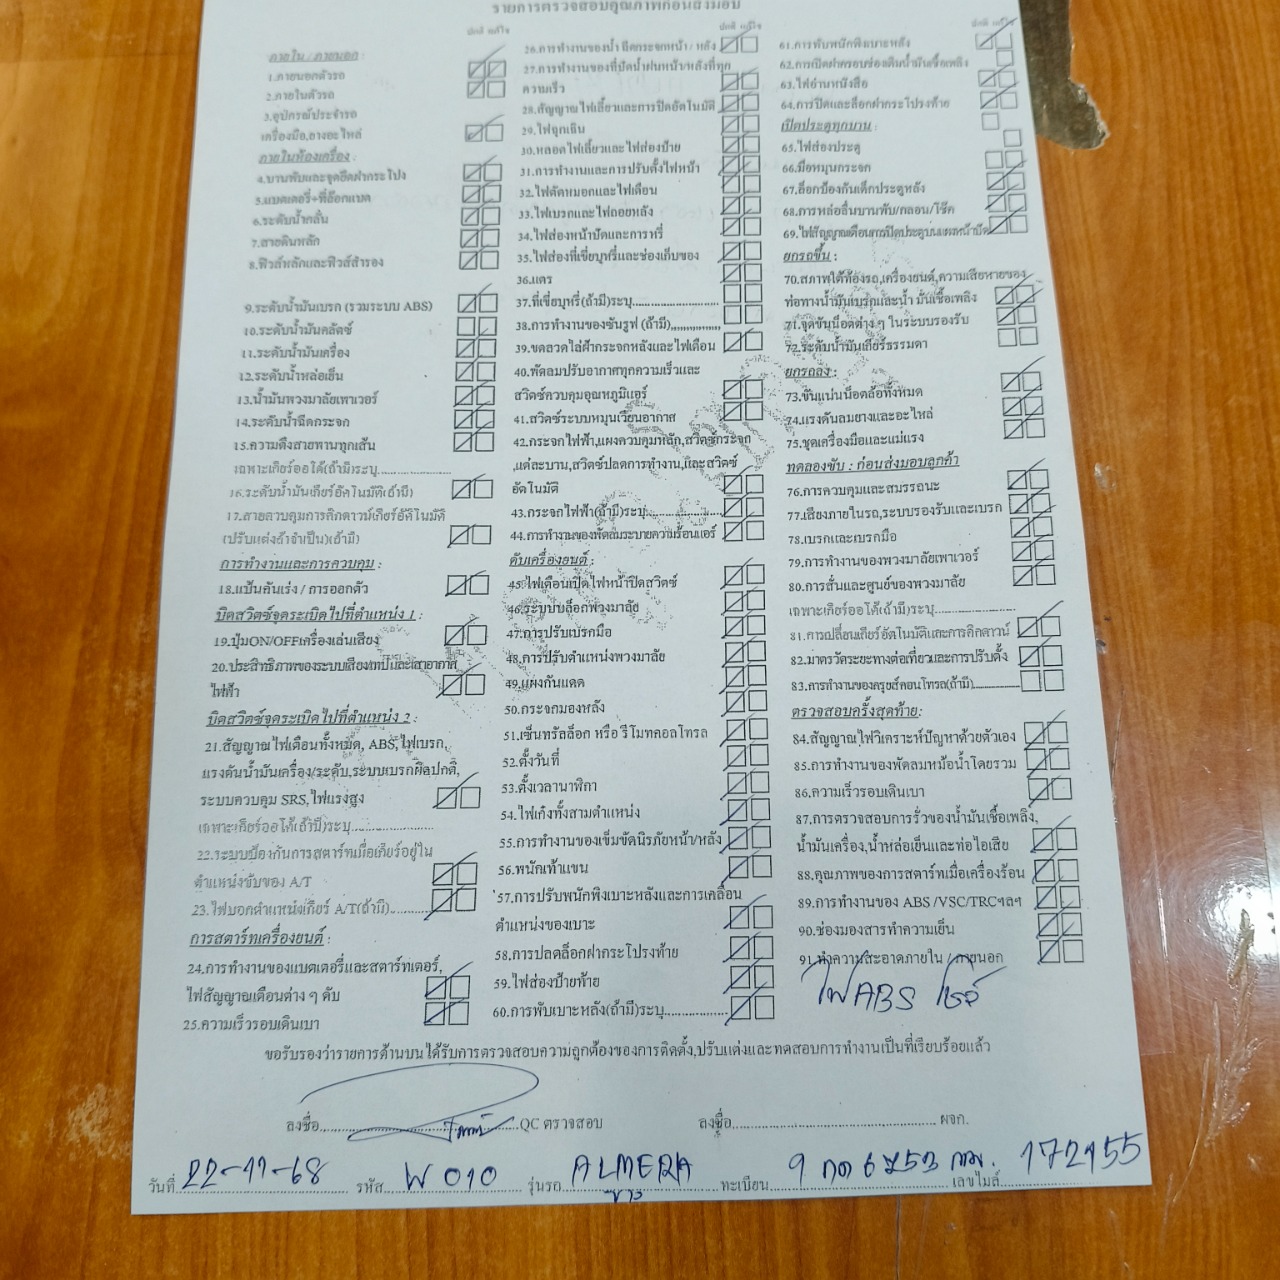 รายการตรวจสอบคุณภาพก่อนส่งมอบ
ปกติ แก้ไข
ภายใน / ภายนอก :
1.ภายนอกตัวรถ
2.ภายในตัวรถ
3.อุปกรณ์ประจำรถ
เครื่องมือ,ยางอะไหล่
ภายในห้องเครื่อง :
4.บานพับและจุดยึดฝากระโปรง
5.แบตเตอรี่+ที่ล็อกแบต
6.ระดับน้ำกลั่น
7.สายดินหลัก
8.ฟิวส์หลักและฟิวส์สำรอง
9.ระดับน้ำมันเบรก (รวมระบบ ABS)
10.ระดับน้ำมันคลัตช์
11.ระดับน้ำมันเครื่อง
12.ระดับน้ำหล่อเย็น
13.น้ำมันพวงมาลัยเพาเวอร์
14.ระดับน้ำฉีดกระจก
15.ความตึงสายพานทุกเส้น
เฉพาะเกียร์ออโต้(ถ้ามี)ระบุ....................
16.ระดับน้ำมันเกียร์อัตโนมัติ(ถ้ามี)
17.สายควบคุมการคิกดาวน์เกียร์อัตโนมัติ
(ปรับแต่งถ้าจำเป็น)(ถ้ามี)
การทำงานและการควบคุม :
18.แป้นคันเร่ง / การออกตัว
บิดสวิตช์จุดระเบิดไปที่ตำแหน่ง 1 :
19.ปุ่มON/OFFเครื่องเล่นเสียง
20.ประสิทธิภาพของระบบเสียง/เทปและเสาอากาศ
ไฟฟ้า
บิดสวิตช์จุดระเบิดไปที่ตำแหน่ง 2 :
21.สัญญาณไฟเตือนทั้งหมด, ABS,ไฟเบรก,
แรงดันน้ำมันเครื่อง/ระดับ,ระบบเบรกผิดปกติ,
ระบบควบคุม SRS,ไฟแรงสูง
เฉพาะเกียร์ออโต้(ถ้ามี)ระบุ....................
22.ระบบป้องกันการสตาร์ทเมื่อเกียร์อยู่ใน
ตำแหน่งขับของ A/T
23.ไฟบอกตำแหน่งเกียร์ A/T(ถ้ามี).........
การสตาร์ทเครื่องยนต์ :
24.การทำงานของแบตเตอรี่และสตาร์ทเตอร์,
ไฟสัญญาณเตือนต่าง ๆ ดับ
25.ความเร็วรอบเดินเบา
ปกติ แก้ไข
26.การทำงานของน้ำ ฉีดกระจกหน้า / หลัง
27.การทำงานของที่ปัดน้ำฝนหน้า/หลังที่ทุก
ความเร็ว
28.สัญญาณไฟเลี้ยวและการปิดอัตโนมัติ
29.ไฟฉุกเฉิน
30.หลอดไฟเลี้ยวและไฟส่องป้าย
31.การทำงานและการปรับตั้งไฟหน้า
32.ไฟตัดหมอกและไฟเตือน
33.ไฟเบรกและไฟถอยหลัง
34.ไฟส่องหน้าปัดและการหรี่
35.ไฟส่องที่เขี่ยบุหรี่และช่องเก็บของ
36.แตร
37.ที่เขี่ยบุหรี่(ถ้ามี)ระบุ........................
38.การทำงานของซันรูฟ (ถ้ามี)..............
39.ขดลวดไล่ฝ้ากระจกหลังและไฟเตือน
40.พัดลมปรับอากาศทุกความเร็วและ
สวิตช์ควบคุมอุณหภูมิแอร์
41.สวิตช์ระบบหมุนเวียนอากาศ
42.กระจกไฟฟ้า,แผงควบคุมหลัก,สวิตช์กระจก
แต่ละบาน,สวิตช์ปลดการทำงาน,และสวิตช์
อัตโนมัติ
43.กระจกไฟฟ้า(ถ้ามี)ระบุ....................
44.การทำงานของพัดลมระบายความร้อนแอร์
ดับเครื่องยนต์ :
45.ไฟเตือนเปิดไฟหน้าปิดสวิตช์
46.ระบบปลล็อกพวงมาลัย
47.การปรับเบรกมือ
48.การปรับตำแหน่งพวงมาลัย
49.แผงกันแดด
50.กระจกมองหลัง
51.เซ็นทรัลล็อก หรือ รีโมทคอลโทรล
52.ตั้งวันที่
53.ตั้งเวลานาฬิกา
54.ไฟเก๋งทั้งสามตำแหน่ง
55.การทำงานของเข็มขัดนิรภัยหน้า/หลัง
56.พนักเท้าแขน
57.การปรับพนักพิงเบาะหลังและการเคลื่อน
ตำแหน่งของเบาะ
58.การปลดล็อกฝากระโปรงท้าย
59.ไฟส่องป้ายท้าย
60.การพับเบาะหลัง(ถ้ามี)ระบุ................
ปกติ แก้ไข
61.การพับพนักพิงเบาะหลัง
62.การเปิดฝาครอบช่องเติมน้ำมันเชื้อเพลิง
63.ไฟอ่านหนังสือ
64.การปิดและล็อกฝากระโปรงท้าย
เปิดประตูทุกบาน :
65.ไฟส่องประตู
66.มือหมุนกระจก
67.ล็อกป้องกันเด็กประตูหลัง
68.การหล่อลื่นบานพับ/กลอน/โช๊ค
69.ไฟสัญญาณเตือนการปิดประตูบนแผงหน้าปัด
ยกรถขึ้น :
70.สภาพใต้ท้องรถ,เครื่องยนต์,ความเสียหายของ
ท่อทางน้ำมันเบรกและน้ำ มันเชื้อเพลิง
71.จุดขันน็อตต่าง ๆ ในระบบรองรับ
72.ระดับน้ำมันเกียร์ธรรมดา
ยกรถลง :
73.ขันแน่นน็อตล้อทั้งหมด
74.แรงดันลมยางและอะไหล่
75.ชุดเครื่องมือและแม่แรง
ทดลองขับ : ก่อนส่งมอบลูกค้า
76.การควบคุมและสมรรถนะ
77.เสียงภายในรถ,ระบบรองรับและเบรก
78.เบรกและเบรกมือ
79.การทำงานของพวงมาลัยเพาเวอร์
80.การสั่นและศูนย์ของพวงมาลัย
เฉพาะเกียร์ออโต้(ถ้ามี)ระบุ....................
81.การเปลี่ยนเกียร์อัตโนมัติและการคิกดาวน์
82.มาตรวัดระยะทางต่อเที่ยวและการปรับตั้ง
83.การทำงานของครุยส์คอนโทรล(ถ้ามี)............
ตรวจสอบครั้งสุดท้าย:
84.สัญญาณไฟวิเคราะห์ปัญหาด้วยตัวเอง
85.การทำงานของพัดลมหม้อน้ำโดยรวม
86.ความเร็วรอบเดินเบา
87.การตรวจสอบการรั่วของน้ำมันเชื้อเพลิง,
น้ำมันเครื่อง,น้ำหล่อเย็นและท่อไอเสีย
88.คุณภาพของการสตาร์ทเมื่อเครื่องร้อน
89.การทำงานของ ABS /VSC/TRCฯลฯ
90.ช่องมองสารทำความเย็น
91.ทำความสะอาดภายใน / ภายนอก
ไฟ ABS โชว์
ขอรับรองว่ารายการด้านบนได้รับการตรวจสอบความถูกต้องของการติดตั้ง,ปรับแต่งและทดสอบการทำงานเป็นที่เรียบร้อยแล้ว
ลงชื่อ..............................QC ตรวจสอบ ลงชื่อ........................................ ผจก.
วันที่ 22-11-68 รหัส W 010 รุ่นรถ ALMERA ทะเบียน 9 กด 6753 กทม. เลขไมล์ 172155
ขาว